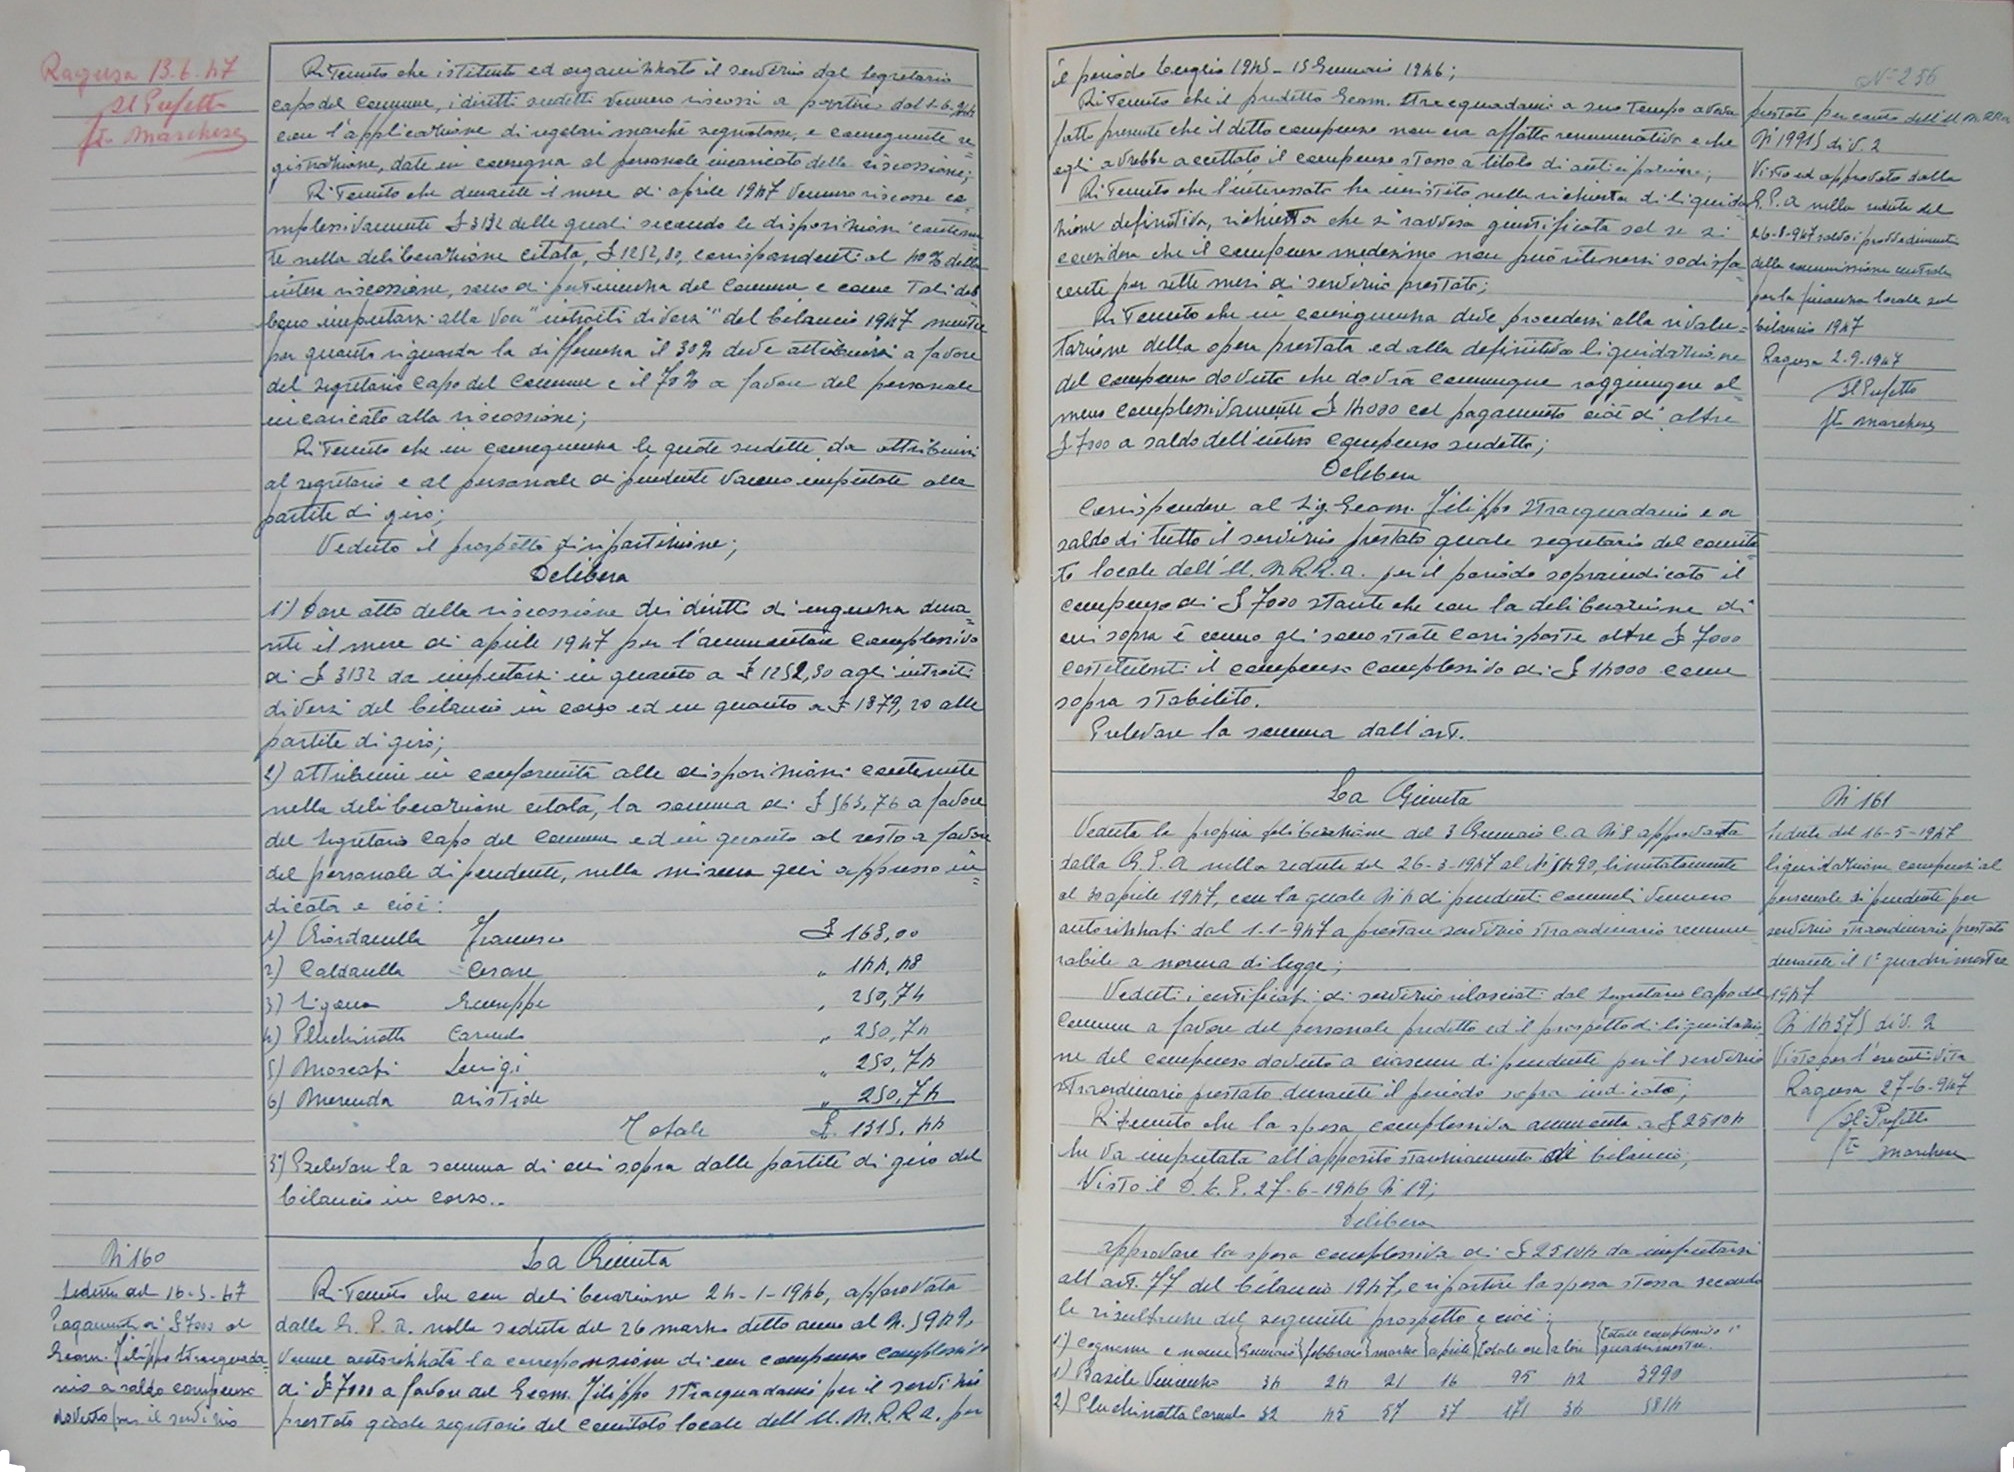 Ragusa 13.6.47
Il Prefetto
Fto Marchese
Ritenuto che istituito ed organizzato il servizio dal Segretario
capo del Comune, i diritti sudetti vennero riscossi a partire dal
con l'applicazione di regolari marche segnatasse, e conseguente re=
gistrazione, date in consegna al personale incaricato della riscossione;
Ritenuto che durante il mese di aprile 1947 vennero riscosse co
mplessivamente £ 3132 delle quali secondo le disposizioni contenu
te nella deliberazione citata, £ 1252,80, corrispondenti al 40% della
intera riscossione, sono di pertinenza del Comune e come tali deb
bono imputarsi alla voce "introiti diversi" del bilancio 1947 mentre
per quanto riguarda la differenza il 30% deve attribuirsi a favore
del segretario capo del Comune e il 70% a favore del personale
incaricato alla riscossione;
Ritenuto che in conseguenza le quote sudette da attribuirsi
al segretario e al personale dipendente vanno imputate alle
partite di giro;
Veduto il prospetto di ripartizione;
Delibera
1°) Dare atto della riscossione dei diritti di urgenza dura=
nte il mese di aprile 1947 per l'ammontare complessivo
di £ 3132 da imputarsi in quanto a £ 1252,80 agli introiti
diversi del bilancio in corso ed in quanto a £ 1879,20 alle
partite di giro;
2) attribuire in conformità alle disposizioni contenute
nella deliberazione citata, la somma di £ 563,76 a favore
del Segretario Capo del Comune ed in quanto al resto a favore
del personale dipendente, nella misura qui appresso in=
dicata e cioè:
1) Giordanella Francesco £ 168,00
2) Caldarella Cesare " 144,48
3) Ligama Giuseppe " 250,74
4) Pluchinotta Carmelo " 250,74
5) Moscati Luigi " 250,74
6) Merenda Aristide " 250,74
Totale £. 1315,44
3°) Prelevare la somma di cui sopra dalle partite di giro del
bilancio in corso..
N° 160
Seduta del 16-5-47
Pagamento di £ 7000 al
Geom. Filippo Stracquada
nio a saldo compenso
dovuto per il servizio
La Giunta
Ritenuto che con deliberazione 24-1-1946, approvata
dalla G. P. A. nella seduta del 26 marzo detto anno al N. 5949,
venne autorizzata la corresponsione di un compenso complessivo
di £ 7000 a favore del Geom. Filippo Stracquadanio per il servizio
prestato quale segretario del Comitato locale dell'U. N. R. R. A. per
N° 256
il periodo Luglio 1945 - 15 Gennaio 1946;
Ritenuto che il predetto Geom. Stracquadanio a suo tempo aveva
fatto presente che il detto compenso non era affatto remunerativo e che
egli avrebbe accettato il compenso stesso a titolo di anticipazione;
Ritenuto che l'interessato ha insistito nella richiesta di liquida
zione definitiva, richiesta che si ravvisa giustificata sol se si
considera che il compenso medesimo non può ritenersi sodisfa
cente per sette mesi di servizio prestato;
Ritenuto che in conseguenza deve procedersi alla rivalu=
tazione della opera prestata ed alla definitiva liquidazione
del compenso dovuto che dovrà comunque raggiungere al
meno complessivamente £ 14000 col pagamento cioè di altre
£ 7000 a saldo dell'intero compenso sudetto;
Delibera
Corrispondere al Sig. Geom. Filippo Stracquadanio e a
saldo di tutto il servizio prestato quale segretario del comita
to locale dell'U. N. R. R. A. per il periodo sopraindicato il
compenso di £ 7000 stante che con la deliberazione di
cui sopra è cenno gli sono state corrisposte altre £ 7000
costituenti il compenso complessivo di £ 14000 come
sopra stabilito.
Prelevare la somma dall'art.
prestato per conto dell'U.N.R.R.A
N° 19915 div. 2
Visto ed approvato dalla
G. P. A nella seduta del
26-8-947 salvo i provvedimenti
della commissione centrale
per la finanza locale sul
bilancio 1947
Ragusa 2-9-1947
Il Prefetto
Fto Marchese
La Giunta
Veduta la propria deliberazione del 3 Gennaio c.a N° 8 approvata
dalla G. P. A nella seduta del 26-3-1947 al N° 5490, limitatamente
al 30 aprile 1947, con la quale N° 4 dipendenti comunali vennero
autorizzati dal 1-1-947 a prestare servizio straordinario remune
rabile a norma di legge;
Veduti i certificati di servizio rilasciati dal Segretario Capo del
Comune a favore del personale predetto ed il prospetto di liquidazio
ne del compenso dovuto a ciascun dipendente per il servizio
straordinario prestato durante il periodo sopra indicato;
Ritenuto che la spesa complessiva ammonta a £ 25104
che va imputata all'apposito stanziamento di bilancio;
Visto il D. L. P. 27-6-1946 N° 19;
Delibera
approvare la spesa complessiva di £ 25104 da imputarsi
all'art. 77 del bilancio 1947, e ripartire la spesa stessa secondo
le risultanze del seguente prospetto e cioè:
1°) Cognome e nome Gennaio febbraio marzo aprile totale ore a lire totale complessivo 1° quadrimestre.
1) Basile Vincenzo 34 24 21 16 95 42 3990
2) Pluchinotta Carmelo 32 45 57 37 171 34 5814
N° 161
Seduta del 16-5-1947
liquidazione compensi al
personale dipendente per
servizio straordinario prestato
durante il 1° quadrimestre
1947
N° 14375 div. 2
Visto per l'esecutività
Ragusa 27-6-947
Il Prefetto
Fto Marchese